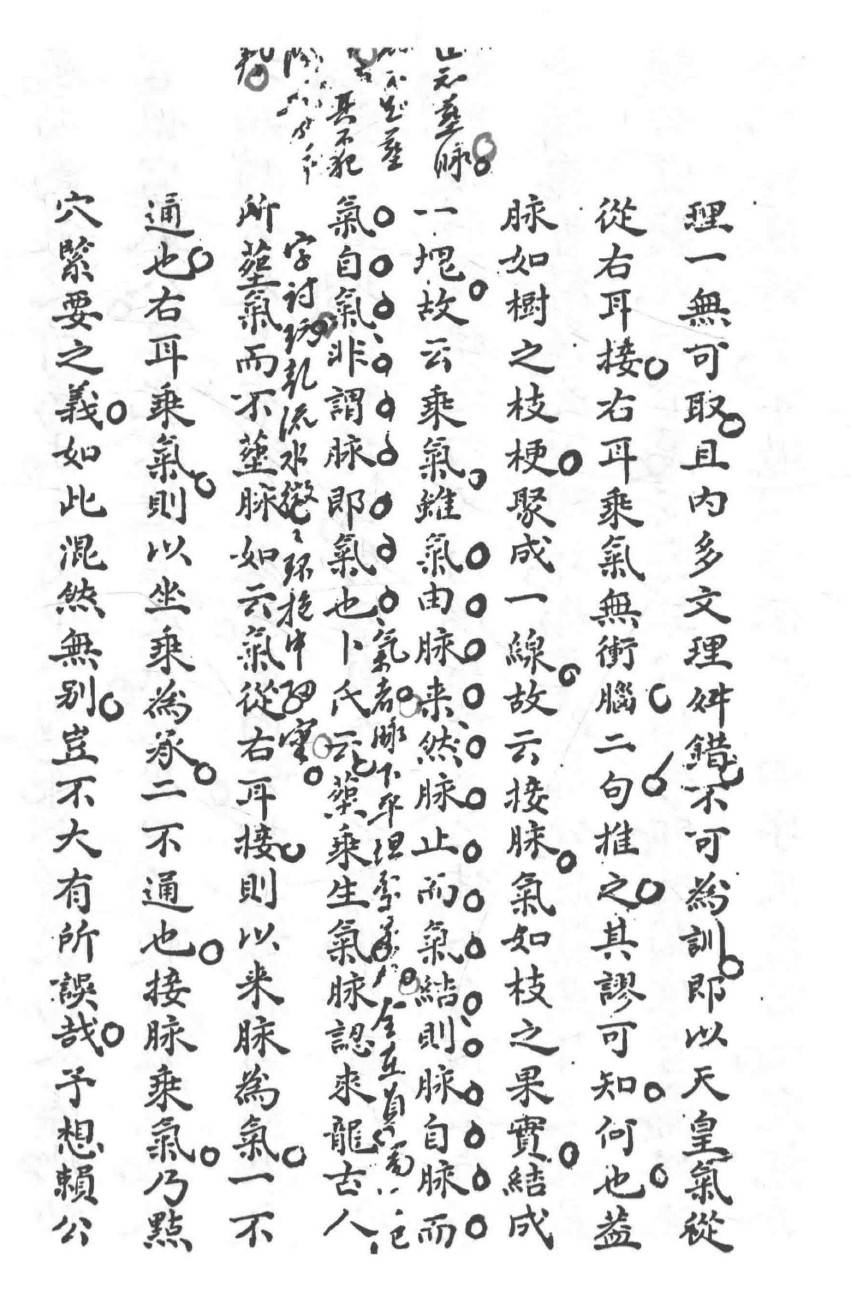 理一無可取且内多文理舛錯不可為訓即以天皇氣從
從右耳接右耳乘氣無衝腦二句推之其謬可知何也葢
脉如樹之枝梗聚成一線故云接脉氣如枝之果實結成
一塊故云乘氣雖氣由脉来然脉止而氣結則脉自脉而
氣自氣非謂脉即氣也卜氏云葬乘生氣脉認来龍古人
所葬氣而不葬脉如云氣從右耳接則以来脉為氣一不
通也右耳乘氣則以坐乘為承二不通也接脉乘氣乃點
穴緊要之義如此混然無别豈不大有所誤哉予想頼公
葬脉
不犯
氣者脉
流水